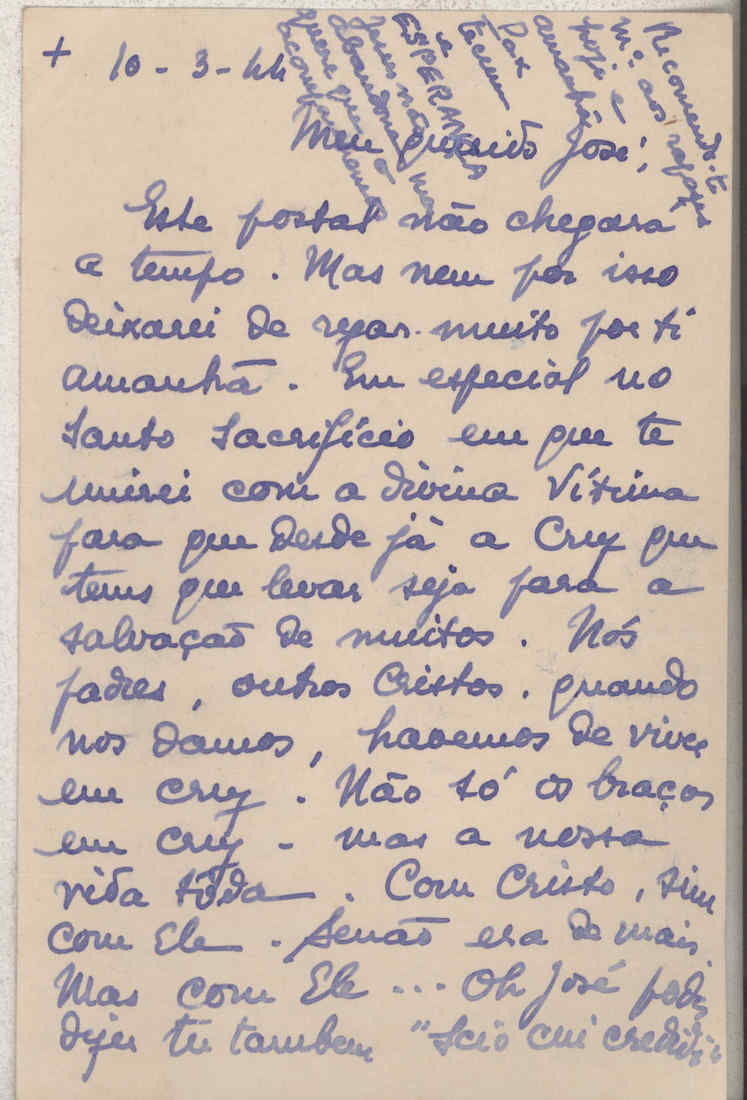 + 10-3-44
Recomenda-te
m.º aos rapazes
hoje e
amanhã
Pax
tecum
e
ESPERANÇA
Jesus não
abandona
quem
Meu querido José,
Este postal não chegara
a tempo. Mas nem por isso
deixarei de rezar muito por ti
amanhã. Em especial no
Santo Sacrifício em que te
unirei com a divina Vítima
para que desde já a Cruz que
tens que levar seja para a
salvação de muitos. Nós
padres, outros Cristos, quando
nos damos, havemos de viver
em cruz. Não só os braços
em cruz - mas a nossa
vida tôda. Com Cristo, sim
com Ele. Senão era de mais.
Mas com Ele ... Oh José podes
dizer tu tambem "Scio cui credidi"